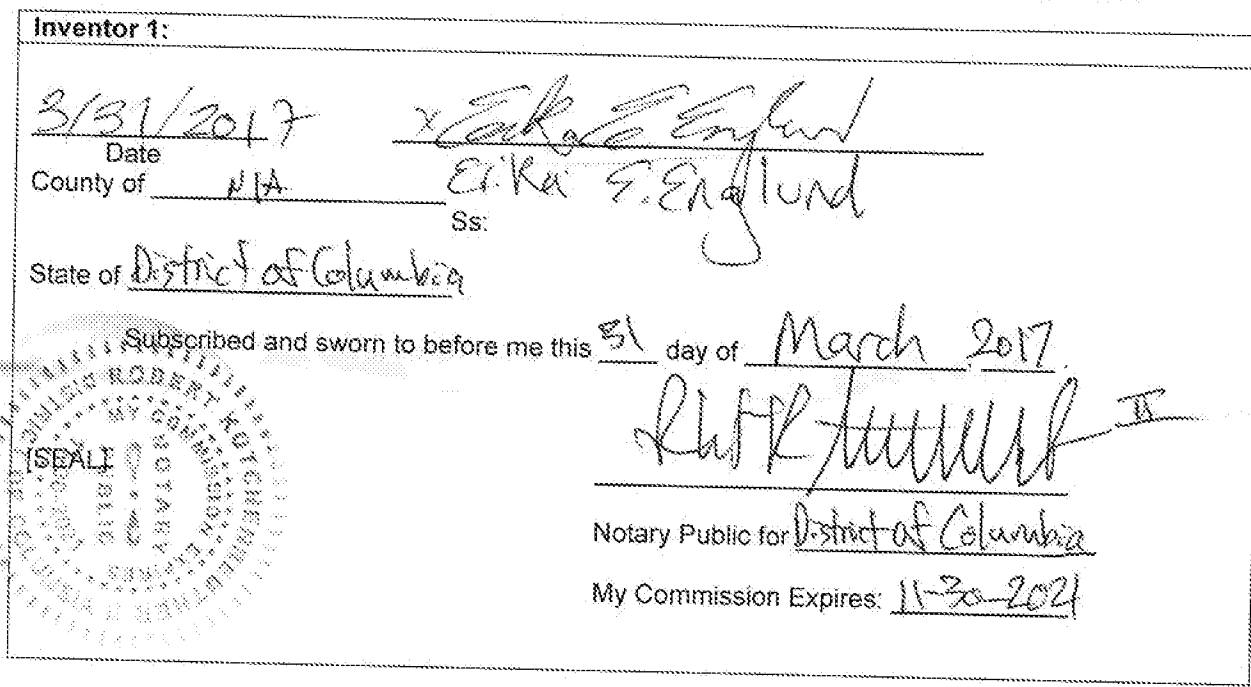 Inventor 1:
3/31/2017 x Erika E Englund
Date
Erika E. Englund
County of N/A
Ss:
State of District of Columbia
Subscribed and sworn to before me this 31 day of March, 2017.
[SEAL]
ROBERT
MY COMMISSION EXPIRES
NOTARY
PUBLIC
II
Notary Public for District of Columbia
My Commission Expires: 11-30-2021